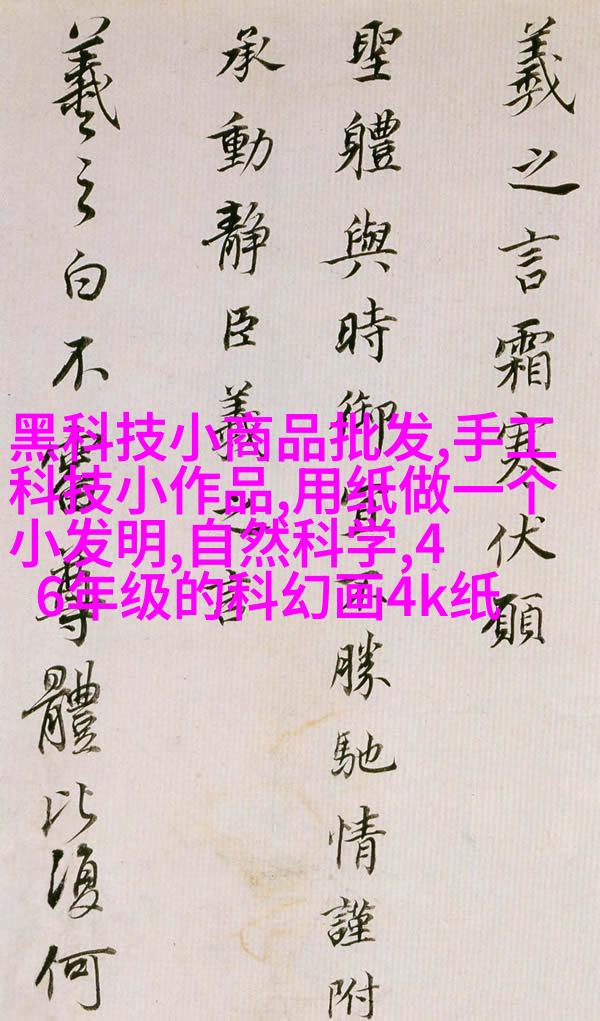 義之言霜寒伏願
聖體與時御宜勝馳情謹附
承動靜臣義之言
羲之白不審尊體比復何
黑科技小商品批发,手工
科技小作品,用纸做一个
小发明,自然科学,4
6年级的科幻画4k纸